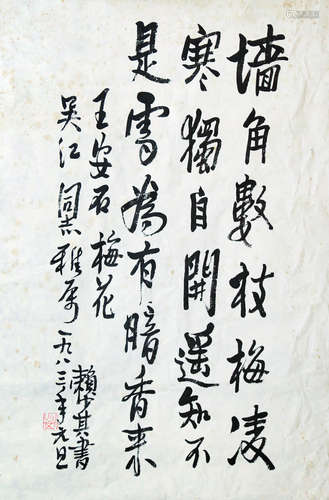 墙角數枝梅凌
寒獨自開遥知不
是雪為有暗香来
王安石梅花
吴江同志雅属一九八三年元旦
賴少其書